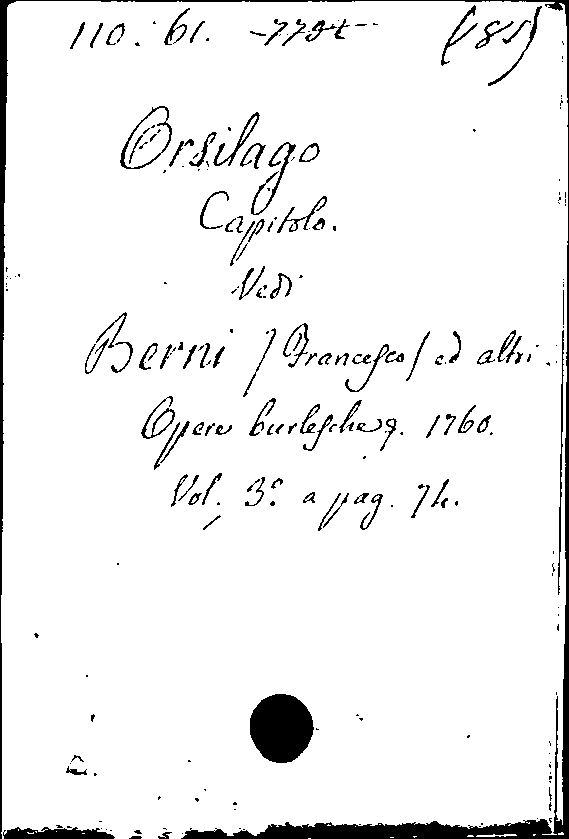 110. 61.
Orsilago
Capitolo.
Vedi
Berni / Francesco / ed altri.
Opere burlesche 1760.
Vol. 3º a pag. 74.